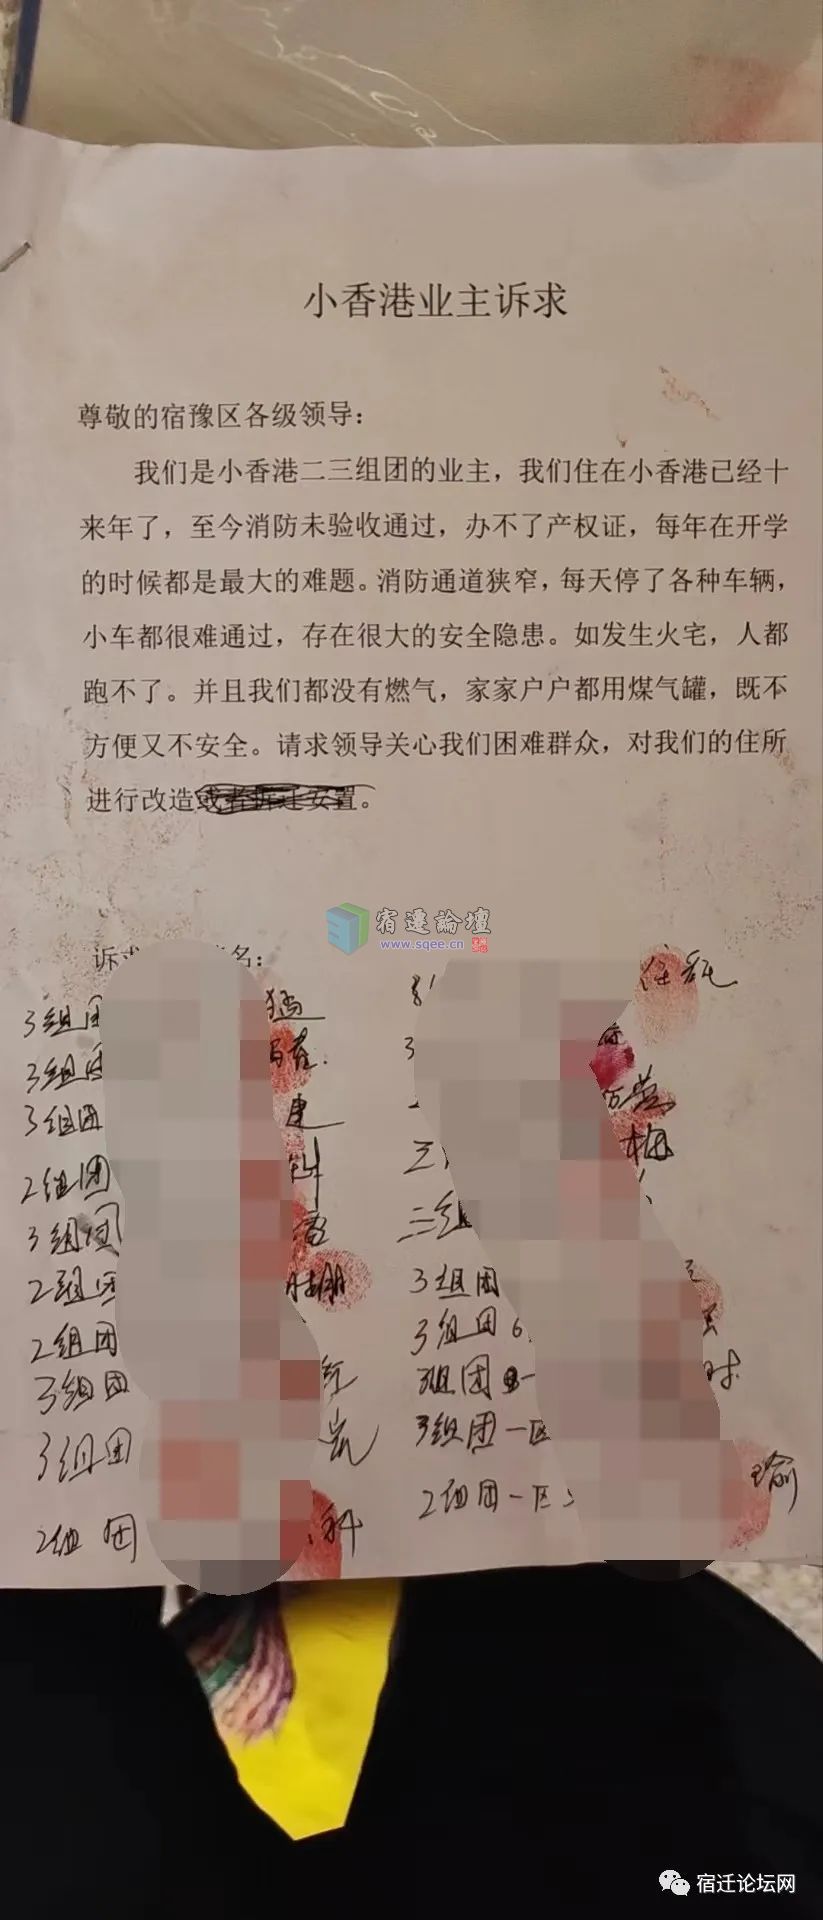 小香港业主诉求
尊敬的宿豫区各级领导：
我们是小香港二三组团的业主，我们住在小香港已经十
来年了，至今消防未验收通过，办不了产权证，每年在开学
的时候都是最大的难题。消防通道狭窄，每天停了各种车辆，
小车都很难通过，存在很大的安全隐患。如发生火宅，人都
跑不了。并且我们都没有燃气，家家户户都用煤气罐，既不
方便又不安全。请求领导关心我们困难群众，对我们的住所
进行改造或者拆迁安置。
宿迁論壇
www.sqee.cn
诉求 名：
3组团
3组团
3组团 建
2组团
3组团
2组团
2组团
3组团 红
3组团
2组团 科
梅
二组
3组团
3组团 6
3组团 时
3组团一区
2组团一区 瑜
宿迁论坛网